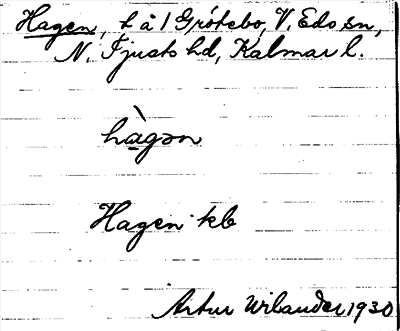 Hagen, t å 1 Grötebo, V. Eds sn,
N. Tjusts hd, Kalmar l.
hàgən
Hagen kb
Artur Wilander 1930